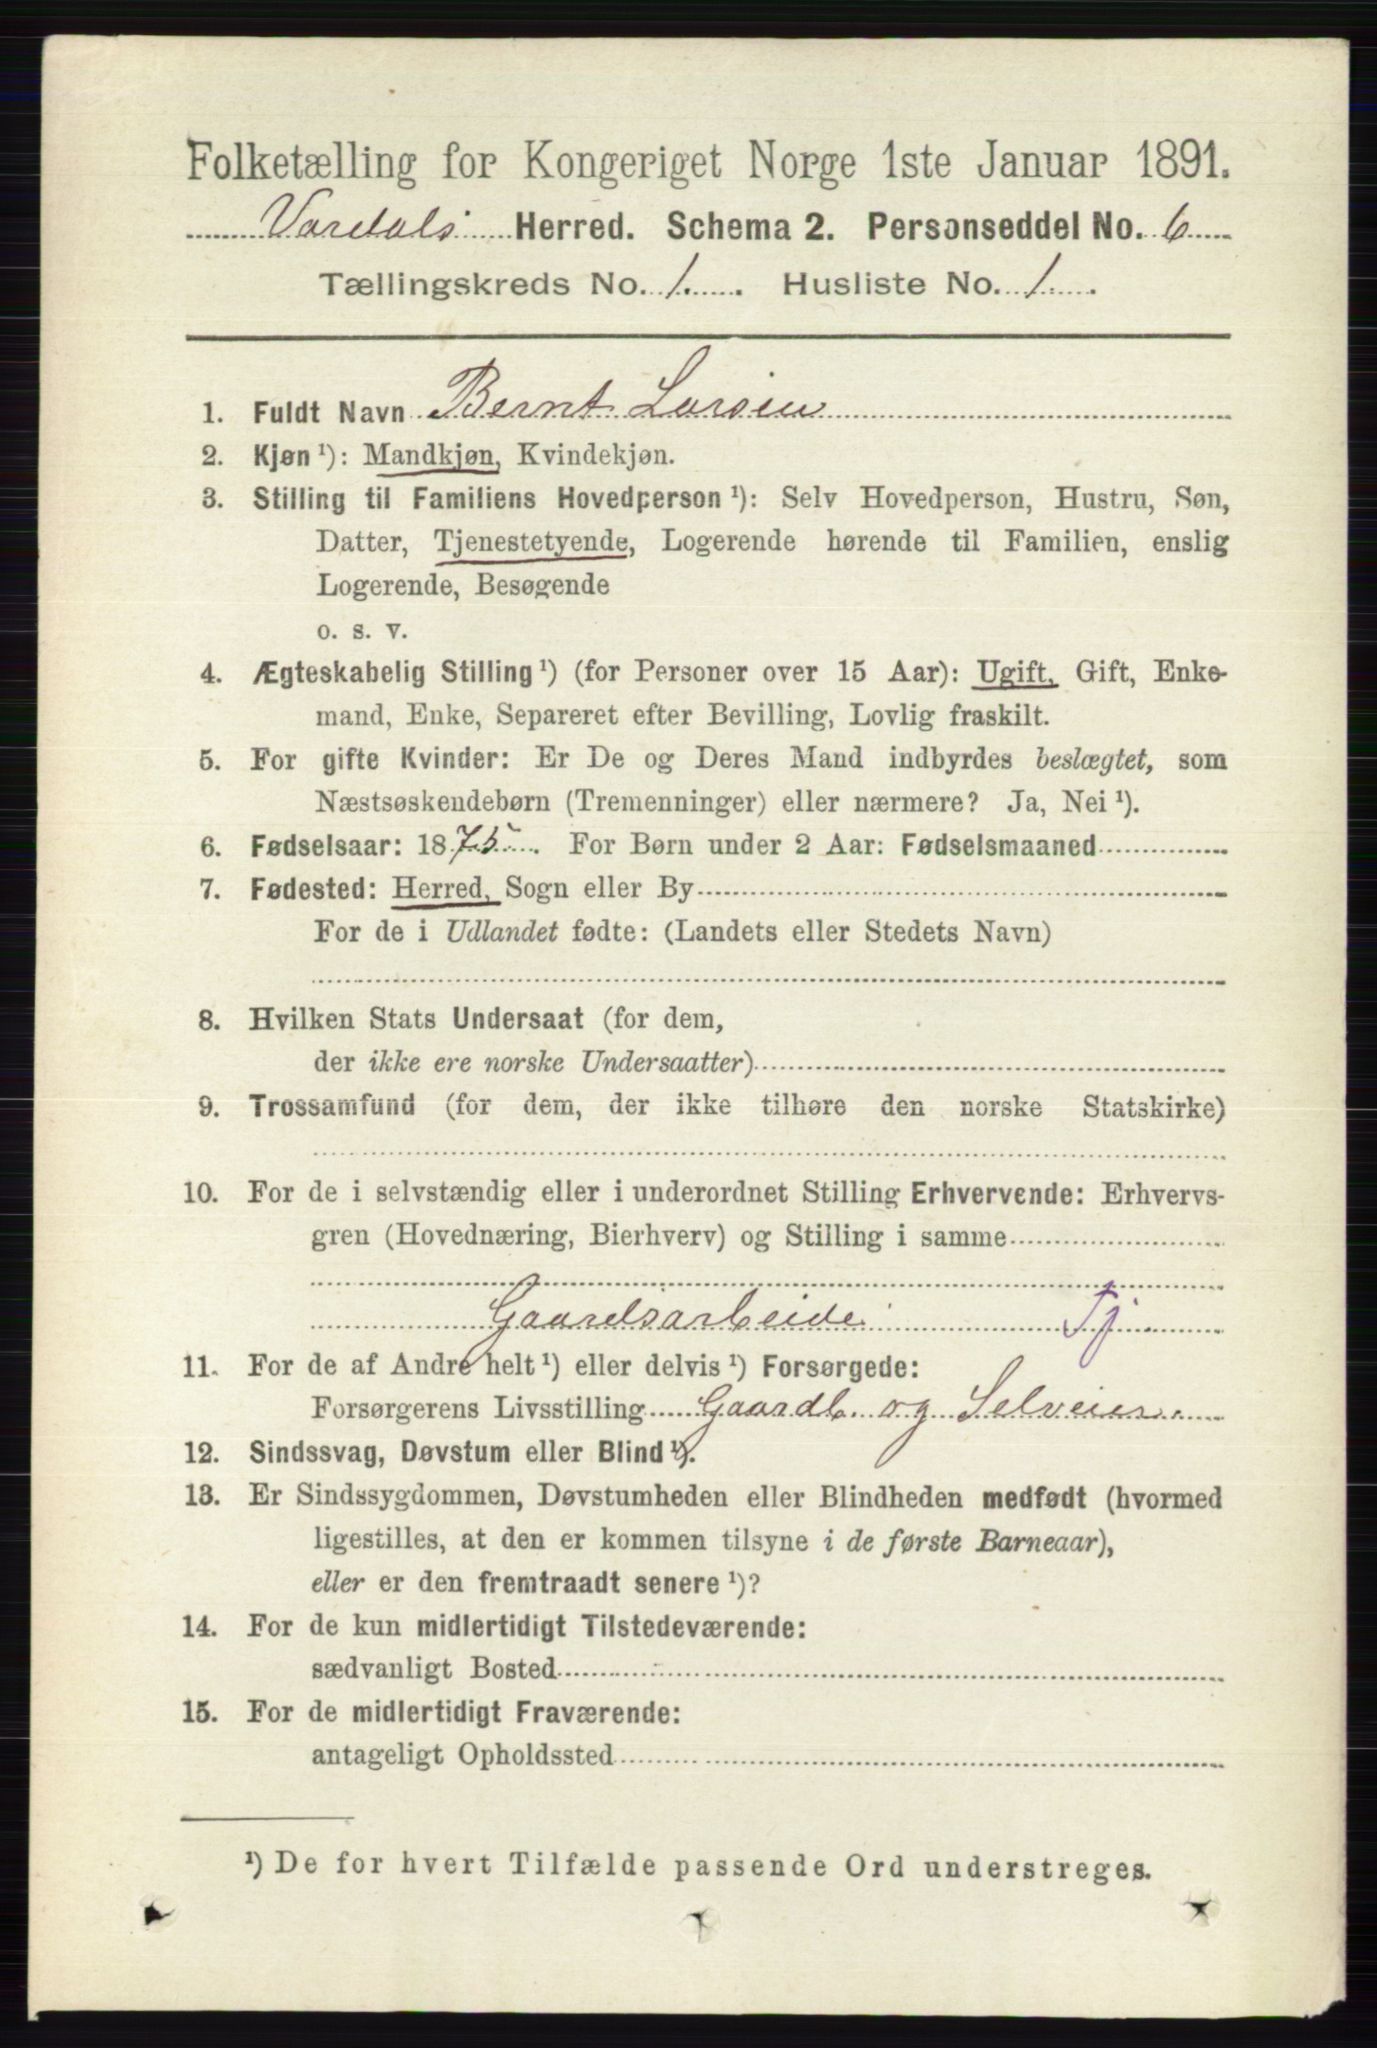 Folketælling for Kongeriget Norge 1ste Januar 1891.
Vardals Herred. Schema 2. Personseddel No. 6
Tællingskreds No. 1. Husliste No. 1.
1. Fuldt Navn Bernt Larsen
2. Kjøn ¹): Mandkjøn, Kvindekjøn.
3. Stilling til Familiens Hovedperson ¹): Selv Hovedperson, Hustru, Søn,
Datter, Tjenestetyende, Logerende hørende til Familien, enslig
Logerende, Besøgende
o. s. v.
4. Ægteskabelig Stilling ¹) (for Personer over 15 Aar): Ugift, Gift, Enke-
mand, Enke, Separeret efter Bevilling, Lovlig fraskilt.
5. For gifte Kvinder: Er De og Deres Mand indbyrdes beslægtet, som
Næstsøskendebørn (Tremenninger) eller nærmere? Ja, Nei ¹).
6. Fødselsaar: 1875. For Børn under 2 Aar: Fødselsmaaned
7. Fødested: Herred, Sogn eller By
For de i Udlandet fødte: (Landets eller Stedets Navn)
8. Hvilken Stats Undersaat (for dem,
der ikke ere norske Undersaatter)
9. Trossamfund (for dem, der ikke tilhøre den norske Statskirke)
10. For de i selvstændig eller i underordnet Stilling Erhvervende: Erhvervs-
gren (Hovednæring, Bierhverv) og Stilling i samme
Gaardsarbeide Tj
11. For de af Andre helt ¹) eller delvis ¹) Forsørgede:
Forsørgerens Livsstilling Gaardb. og Selveier.
12. Sindssvag, Døvstum eller Blind ¹).
13. Er Sindssygdommen, Døvstumheden eller Blindheden medfødt (hvormed
ligestilles, at den er kommen tilsyne i de første Barneaar),
eller er den fremtraadt senere ¹)?
14. For de kun midlertidigt Tilstedeværende:
sædvanligt Bosted
15. For de midlertidigt Fraværende:
antageligt Opholdssted
¹) De for hvert Tilfælde passende Ord understreges.